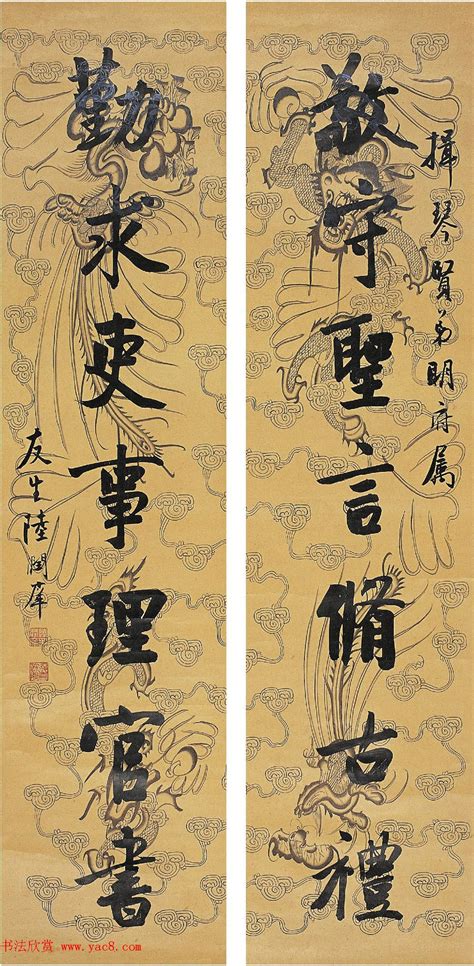 揖琴賢弟明府属
敬守聖言脩古禮
勤求吏事理官書
友生陸潤庠
书法欣赏 www.yac8.com